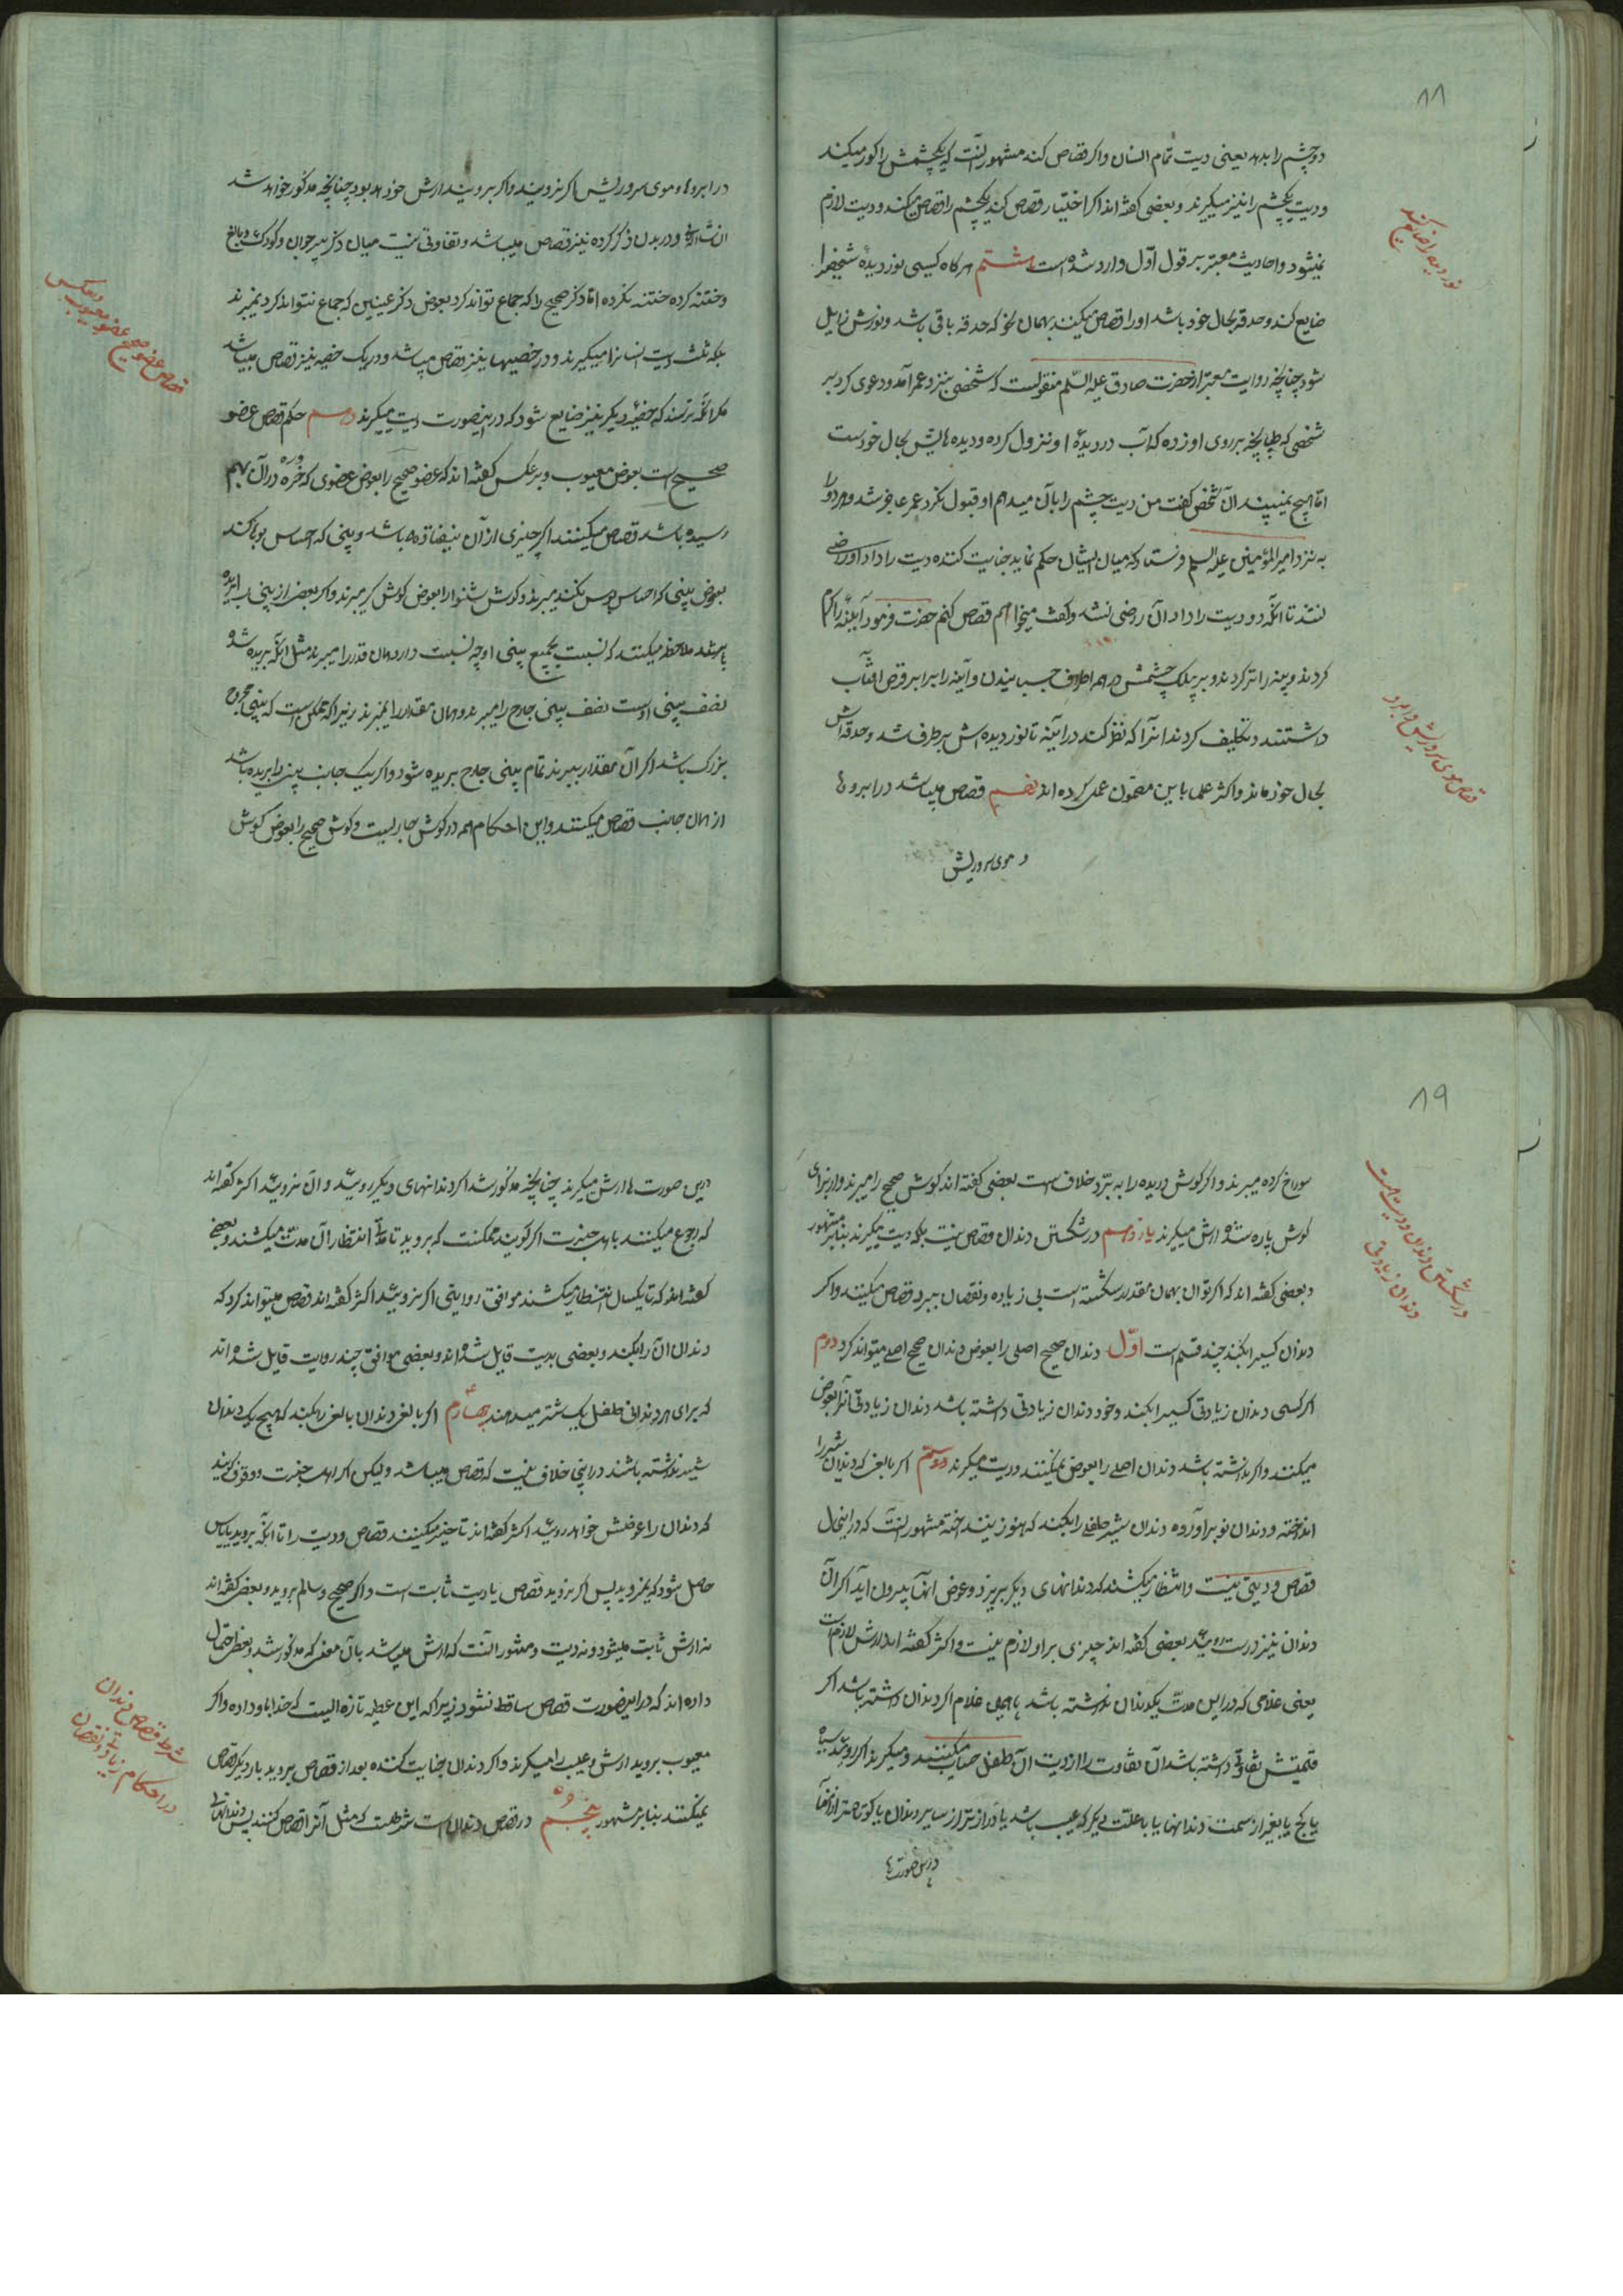 ۸۸
دو چشم را بدهد یعنی دیت تمام انسان و اگر قصاص کند مشهور آنست که یکچشمش را کور میکند
و دیت یکچشم را نیز میگیرند و بعضی گفته اند اگر اختیار قصاص کند یکچشم را قصاص میکند و دیت لازم
نمیشود و احادیث معتبر بر قول اوّل وارد شده است هشتم هر گاه کسی نور دیدهٔ شخصی را
ضایع کند و حدقه بحال خود باشد او را قصاص میکنند بهمان نحو که حدقه باقی باشد و نورش زایل
شود چنانچه روایت معتبر از حضرت صادق علیه السّلم منقولست که شخصی بنزد عمر آمد و دعوی کرد بر
شخصی که طپانچه بر روی او زده که آب در دیدهٔ او نزول کرده و دیده هایش بحال خود است
امّا هیچ نمیبیند آن شخص گفت من دیت چشم را بآن میدهم او قبول نکرد عمر عاجز شد و هر دو را
به نزد امیر المؤمنین علیه السلم فرستاد که میان ایشان حکم نماید جنایت کننده دیت را داد او راضی
نشد تا آنکه دو دیت را داد آن راضی نشد و گفت میخواهم قصاص کنم حضرت فرمود آیینه را گرم
کردند و پنبه را تر کردند و بر پلک چشمش و همه اطراف چسبانیدن و آینه را برابر قرص آفتاب
داشتند و تکلیف کردند آنرا که نظر کند در آینه تا نور دیده اش بر طرف شد و حدقه اش
بحال خود ماند و اکثر علما باین مضمون عمل کرده اند نهم قصاص میباشد در ابروها
و موی سر و ریش
نور دیده را ضایع کند
قصاص موی سر و ریش و ابرو
در ابروها و موی سر و ریش اگر نرویند و اگر برویند ارش خواهد بود چنانچه مذکور خواهد شد
انشاءاللّه و در بدن ذکر کرده نیز قصاص میباشد و تفاوتی نیست میان ذکر پیر و جوان و کودک و بالغ
و ختنه کرده ختنه نکرده امّا ذکر صحیح را که جماع تواند کرد بعوض ذکر عینین که جماع نتواند کرد نمیبرند
بلکه ثلث دیت انسانرا میگیرند و در خصیها نیز قصاص میباشد و در یک خصیه نیز قصاص میباشد
مگر آنکه ترسند که خصیهٔ دیگر نیز ضایع شود که در اینصورت دیت میگیرند دهم حکم قصاص عضو
صحیح است بعوض معیوب و بر عکس گفته اند که عضو صحیح را بعوض عضوی که خُوره در آن بهم
رسیده باشد قصاص میکنند اگر چیزی از آن نیفتاده باشد و بینی که احساس بو نکند
بعوض بینی که احساس بوس نکند میبرند و گوش شنوا را بعوض گوش کر میبرند و اگر بعضی از بینی را بریده
باشند ملاحظه میکنند که نسبت بجمیع بینی او چه نسبت دارد همان قدر را میبرند مثل آنکه بریده شده
نصف بینی اوست نصف بینی جارح را میبرند و همان مقدار را نمیبرند زیرا که ممکن است که بینی مجروح
بزرگ باشد اگر آن مقدار ببرند تمام بینی جارح بریده شود و اگر یک جانب بینی را بریده باشد
از همان جانب قصاص میکنند و این احکام همه در گوش جاریست و گوش صحیح را بعوض گوش
قصاص عضو صحیح بعضو معیوب و بعکس
۸۹
سوراخ کرده میبرند و اگر گوش دریده را به برّد خلاف است بعضی گفته اند گوش صحیح را میبرند و از برای
گوش پاره شده ارش میگیرند یازدهم در شکستن دندان قصاص نیست بلکه دیت میگیرند بنابر مشهور
و بعضی گفته اند که اگر توان بهمان مقدار شکسته است بی زیاده و نقصان ببرد قصاص میکنند و اگر
دندان کسی را بکند چند قسم است اوّل دندان صحیح اصلی را بعوض دندان صحیح اصلی میتواند کرد دوم
اگر کسی دندان زیادتی کسی را بکند و خود دندان زیادتی داشته باشد دندان زیادتی آنرا بعوض
میکنند و اگر نداشته باشد دندان اصلی را بعوض نمیکنند و دیت میگیرند سیم اگر بالغی که دندان شیر را
انداخته و دندان نو برآورده دندان شیر طفلی را بکند که هنوز نینداخته مشهور آنست که در اینحال
قصاص و دیتی نیست و انتظار میکشند که دندانهای دیگر بریزد و عوض آنها بیرون آید اگر آن
دندان نیز درست روئید بعضی گفته اند چیزی بر او لازم نیست و اکثر گفته اند ارش لازم است
یعنی غلامی که در این مدّت یکدندان نداشته باشد با همین غلام اگر دندان داشته باشد اگر
قیمتش تفاوتی داشته باشد آن تفاوت را از دیت آن طفل حساب میکنند و میگیرند اگر روئید سیاه
یا کج یا بغیر از سمت دندانها یا با علّت دیگر که عیب باشد یا درازتر از سایر دندان یا کوتاهتر از آنها
درین صورت ها
در شکستن دندان و دیت است
دندان زیادتی
درین صورت ها ارش میگیرند چنانچه مذکور شد اگر دندانهای دیگر روئید و آن نروئید اکثر گفته اند
که رجوع میکنند باهل خبرت اگر گویند ممکنست که بروید تا مدّتی انتظار آن مدّت میکشند و بعضی
گفته اند که تا یکسال انتظار میکشند موافق روایتی اگر نروئید اکثر گفته اند قصاص میتواند کرد که
دندان آن را بکند و بعضی بدیت قایل شده اند و بعضی موافق چند روایت قایل شده اند
که برای هر دندانی طفل یک شتر میدهند چهارم اگر بالغی دندان بالغی را بکند که هیچ یک دندان
شیر نداشته باشند در این خلاف نیست که قصاص میباشد و لیکن اگر اهل خبرت و وقوف گویند
که دندان را عوضش خواهد روئید اکثر گفته اند تاخیر میکنند قصاص و دیت را تا آنکه بروید یا یاس
حاصل شود که نمیروید پس اگر نروید قصاص یا دیت ثابت است و اگر صحیح و سالم بروید و بعضی گفته اند
نه ارش ثابت میشود و نه دیت و مشهور آنست که ارش میباشد بآن معنی که مذکور شد و بعضی احتمال
داده اند که در اینصورت قصاص ساقط نشود زیرا که این عطیه تازه ایست که خدا باو داده و اگر
معیوب بروید ارش و عیب را میگیرند و اگر دندان جنایت کننده بعد از قصاص بروید بار دیگر قصاص
نمیکنند بنابر مشهور پنجم در قصاص دندان است شرطست که مثل آنرا قصاص کنند پس دندانهای
شرط قصاص دندان
در احکام زیادتی و نقصان